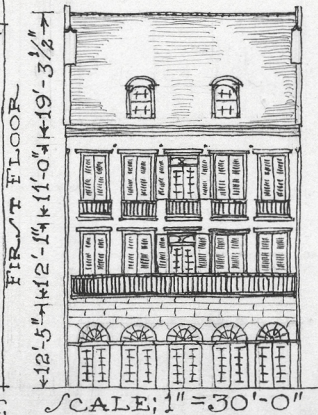 FIRST FLOOR
12'-5" 12'-1" 11'-0" 19'-3½"
SCALE; 1" = 30'-0"